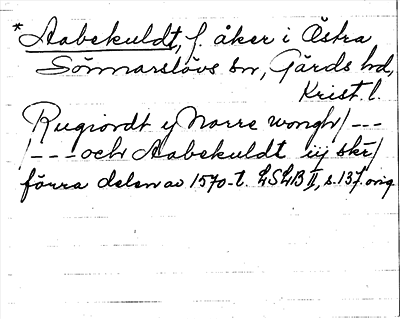 *Aabekuldt, f. åker i Östra
Sönnarslövs sn, Gärds hd,
Krist. l.
Rugiordt y Norre wongh/---
/---och Aabekuldt iij skr/
förra delen av 1570-t. LSLB II, s. 137. orig